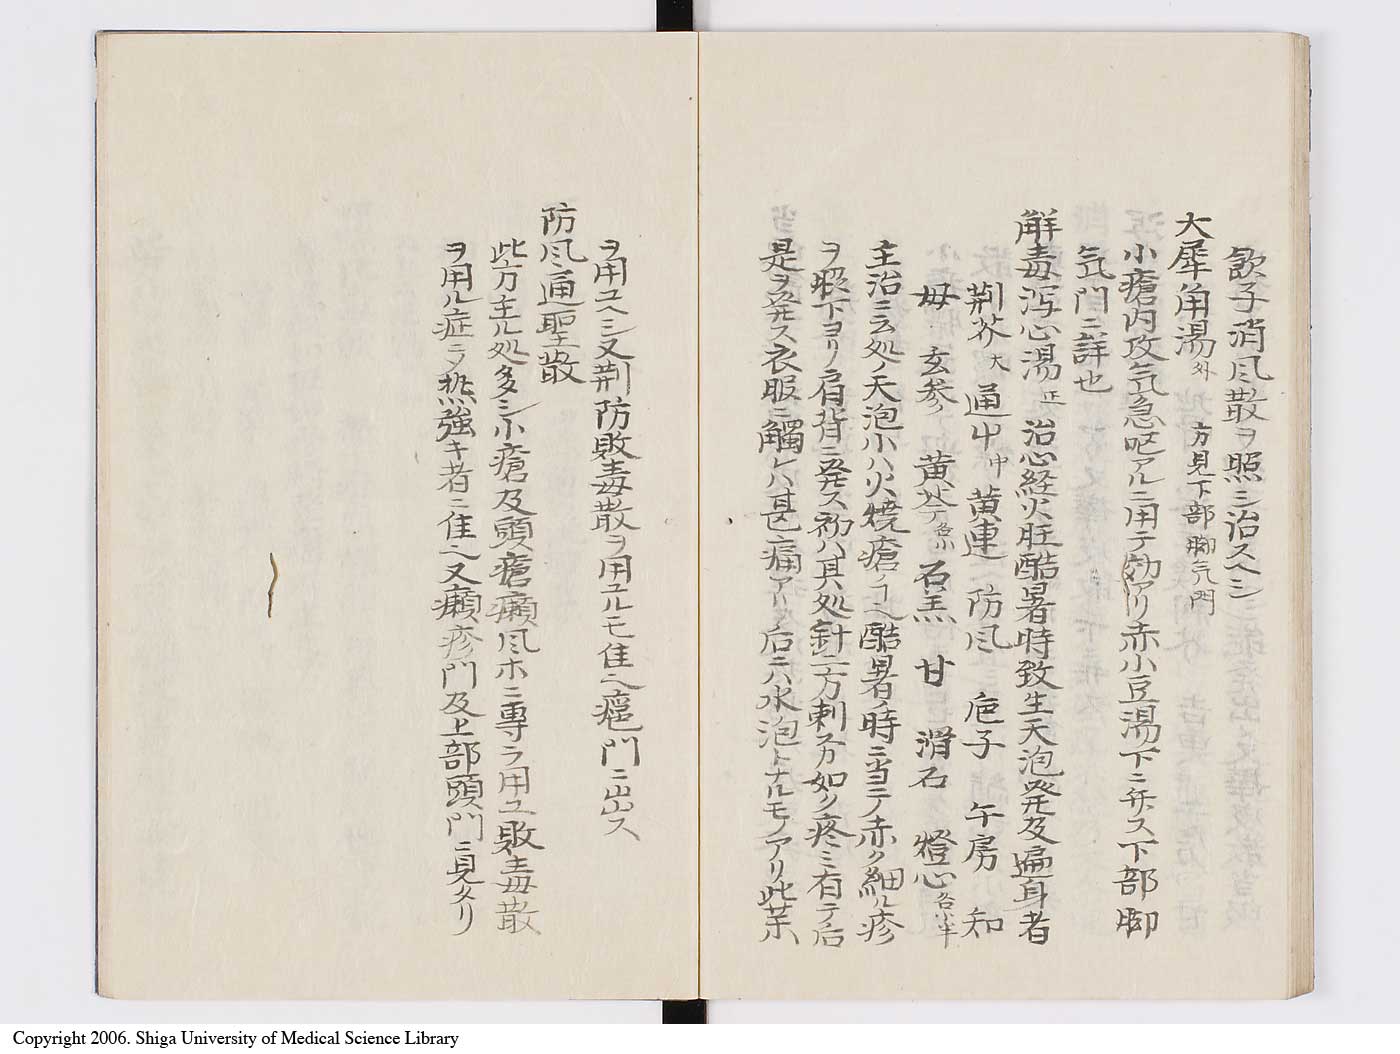 飲子消风散ヲ照シ治スヘシ
大犀角湯 外 方見下部脚气門
小瘡内攻气急咜アルニ用テ効アリ赤小豆湯ノ下ニ弁ス下部脚
气門ニ詳也
解毒瀉心湯 正 治心経火旺酷暑時致生天泡発及遍身者
荆芥大 通中 黄連 防风 梔子 午房 知
母 玄参 黄芩各小 石羔 甘 滑石 燈心各小半
主治ニ云処ノ天泡小ハ火焼瘡ノ酷暑ノ時ニ当テ赤ク細ル疹
ヲ暇下ヨリ肩背ニ発ス初ハ其処針ニ方刺スカ如ク疼ミ有テ后
是ヲ発ス衣服ニ觸レハ甚痛アリ后ニハ水泡トナルモノアリ此薬
ヲ用ユヘシ又荆防敗毒散ヲ用ユルモ佳シ瘟門ニ出ス
防风通聖散
此方主ル処多シ小瘡及頭瘡癩风ホニ専ラ用ユ敗毒散
ヲ用ル症ニテ热強キ者ニ佳シ又癩疹門及上部頭門ニ見タリ
Copyright 2006. Shiga University of Medical Science Library